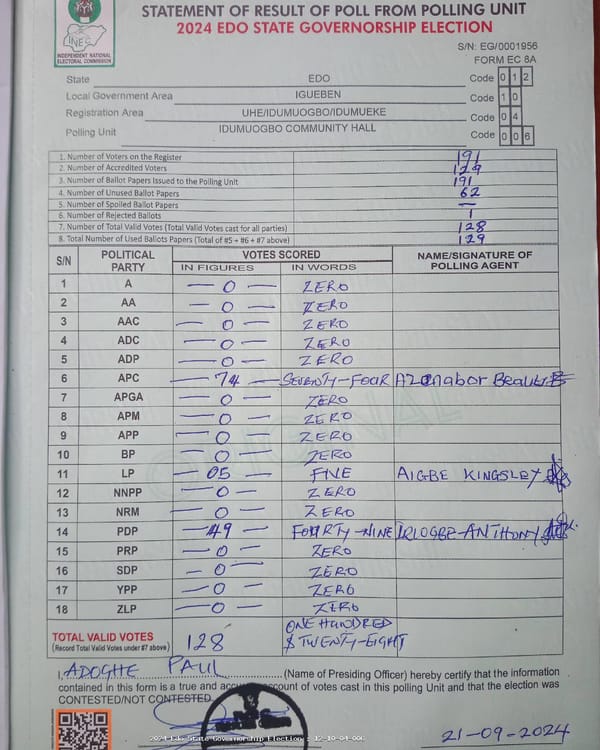 STATEMENT OF RESULT OF POLL FROM POLLING UNIT
2024 EDO STATE GOVERNORSHIP ELECTION
INEC
INDEPENDENT NATIONAL
ELECTORAL COMMISSION
S/N: EG/0001956
FORM EC 8A
State EDO Code 0 1 2
Local Government Area IGUEBEN Code 1 0
Registration Area UHE/IDUMUOGBO/IDUMUEKE Code 0 4
Polling Unit IDUMUOGBO COMMUNITY HALL Code 0 0 6
1. Number of Voters on the Register 191
2. Number of Accredited Voters 129
3. Number of Ballot Papers Issued to the Polling Unit 191
4. Number of Unused Ballot Papers 62
5. Number of Spoiled Ballot Papers —
6. Number of Rejected Ballots 1
7. Number of Total Valid Votes (Total Valid Votes cast for all parties) 128
8. Total Number of Used Ballots Papers (Total of #5 + #6 + #7 above) 129
S/N POLITICAL PARTY VOTES SCORED NAME/SIGNATURE OF POLLING AGENT
IN FIGURES IN WORDS
1 A — 0 — ZERO
2 AA — 0 — ZERO
3 AAC — 0 — ZERO
4 ADC — 0 — ZERO
5 ADP — 0 — ZERO
6 APC — 74 — SEVENTY-FOUR
7 APGA — 0 — ZERO
8 APM — 0 — ZERO
9 APP — 0 — ZERO
10 BP — 0 — ZERO
11 LP — 05 — FIVE AIGBE KINGSLEY
12 NNPP — 0 — ZERO
13 NRM — 0 — ZERO
14 PDP — 49 — FOURTY-NINE IRIOGBE ANTHONY
15 PRP — 0 — ZERO
16 SDP — 0 — ZERO
17 YPP — 0 — ZERO
18 ZLP — 0 — ZERO
TOTAL VALID VOTES 128 ONE HUNDRED
(Record Total Valid Votes under #7 above) & TWENTY-EIGHT
I, ADOGHE PAUL (Name of Presiding Officer) hereby certify that the information
contained in this form is a true and account of votes cast in this polling Unit and that the election was
CONTESTED/NOT CONTESTED.
2024 Edo State Governorship Election
21-09-2024